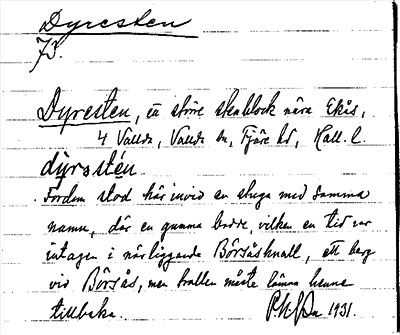 Dyresten
73.
Dyresten, en större stenblock nära Ekås,
4 Vallda, Vallda sn, Fjäre hd, Hall. l.
dỳrstén.
Fordom stod här invid en stuga med samma
namn, där en gumma bodde, vilken en tid var
intagen i närliggande Börsåsknall, ett berg
vid Börsås, men trollen måste lämna henne
tillbaka. 1931.